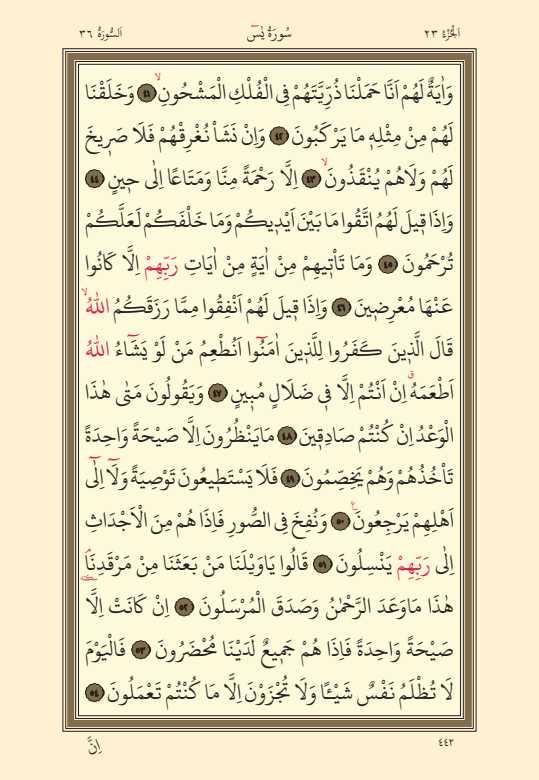 اَلْجُزْءُ ٢٣ سُورَةُ يٰسٓ اَلسُّورَةُ ٣٦
وَاٰيَةٌ لَهُمْ اَنَّا حَمَلْنَا ذُرِّيَّتَهُمْ فِي الْفُلْكِ الْمَشْحُونِۙ ٤١ وَخَلَقْنَا
لَهُمْ مِنْ مِثْلِهٖ مَا يَرْكَبُونَ ٤٢ وَاِنْ نَشَاْ نُغْرِقْهُمْ فَلَا صَرٖيخَ
لَهُمْ وَلَاهُمْ يُنْقَذُونَۙ ٤٣ اِلَّا رَحْمَةً مِنَّا وَمَتَاعًا اِلٰى حٖينٍ ٤٤
وَاِذَا قٖيلَ لَهُمُ اتَّقُوا مَا بَيْنَ اَيْدٖيكُمْ وَمَا خَلْفَكُمْ لَعَلَّكُمْ
تُرْحَمُونَ ٤٥ وَمَا تَاْتٖيهِمْ مِنْ اٰيَةٍ مِنْ اٰيَاتِ رَبِّهِمْ اِلَّا كَانُوا
عَنْهَا مُعْرِضٖينَ ٤٦ وَاِذَا قٖيلَ لَهُمْ اَنْفِقُوا مِمَّا رَزَقَكُمُ اللّٰهُۙ
قَالَ الَّذٖينَ كَفَرُوا لِلَّذٖينَ اٰمَنُٓوا اَنُطْعِمُ مَنْ لَوْ يَشَٓاءُ اللّٰهُ
اَطْعَمَهُۗ اِنْ اَنْتُمْ اِلَّا فٖي ضَلَالٍ مُبٖينٍ ٤٧ وَيَقُولُونَ مَتٰى هٰذَا
الْوَعْدُ اِنْ كُنْتُمْ صَادِقٖينَ ٤٨ مَايَنْظُرُونَ اِلَّا صَيْحَةً وَاحِدَةً
تَاْخُذُهُمْ وَهُمْ يَخِصِّمُونَ ٤٩ فَلَا يَسْتَطٖيعُونَ تَوْصِيَةً وَلَٓا اِلٰٓى
اَهْلِهِمْ يَرْجِعُونَ ٥٠ وَنُفِخَ فِي الصُّورِ فَاِذَا هُمْ مِنَ الْاَجْدَاثِ
اِلٰى رَبِّهِمْ يَنْسِلُونَ ٥١ قَالُوا يَاوَيْلَنَا مَنْ بَعَثَنَا مِنْ مَرْقَدِنَا
هٰذَا مَاوَعَدَ الرَّحْمٰنُ وَصَدَقَ الْمُرْسَلُونَ ٥٢ اِنْ كَانَتْ اِلَّا
صَيْحَةً وَاحِدَةً فَاِذَا هُمْ جَمٖيعٌ لَدَيْنَا مُحْضَرُونَ ٥٣ فَالْيَوْمَ
لَا تُظْلَمُ نَفْسٌ شَيْـًٔا وَلَا تُجْزَوْنَ اِلَّا مَا كُنْتُمْ تَعْمَلُونَ ٥٤
٤٤٢ اِنَّ